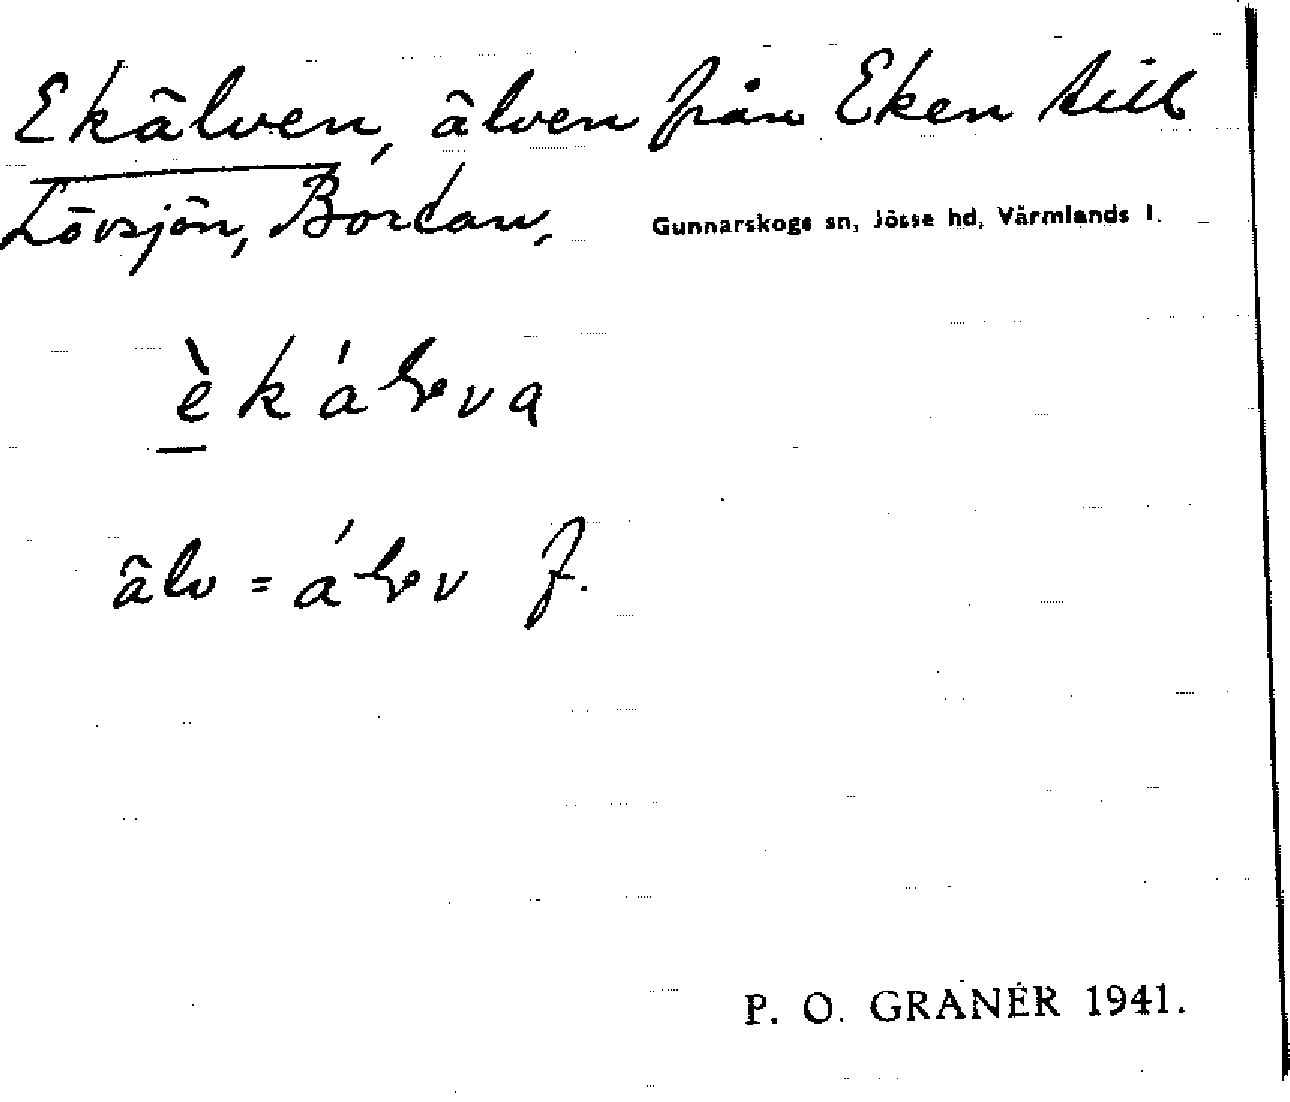 Ekälven, älven från Eken till
Lövsjön, Bortan,
Gunnarskogs sn, Jösse hd, Värmlands l.
älv = f.
P. O. GRANÉR 1941.